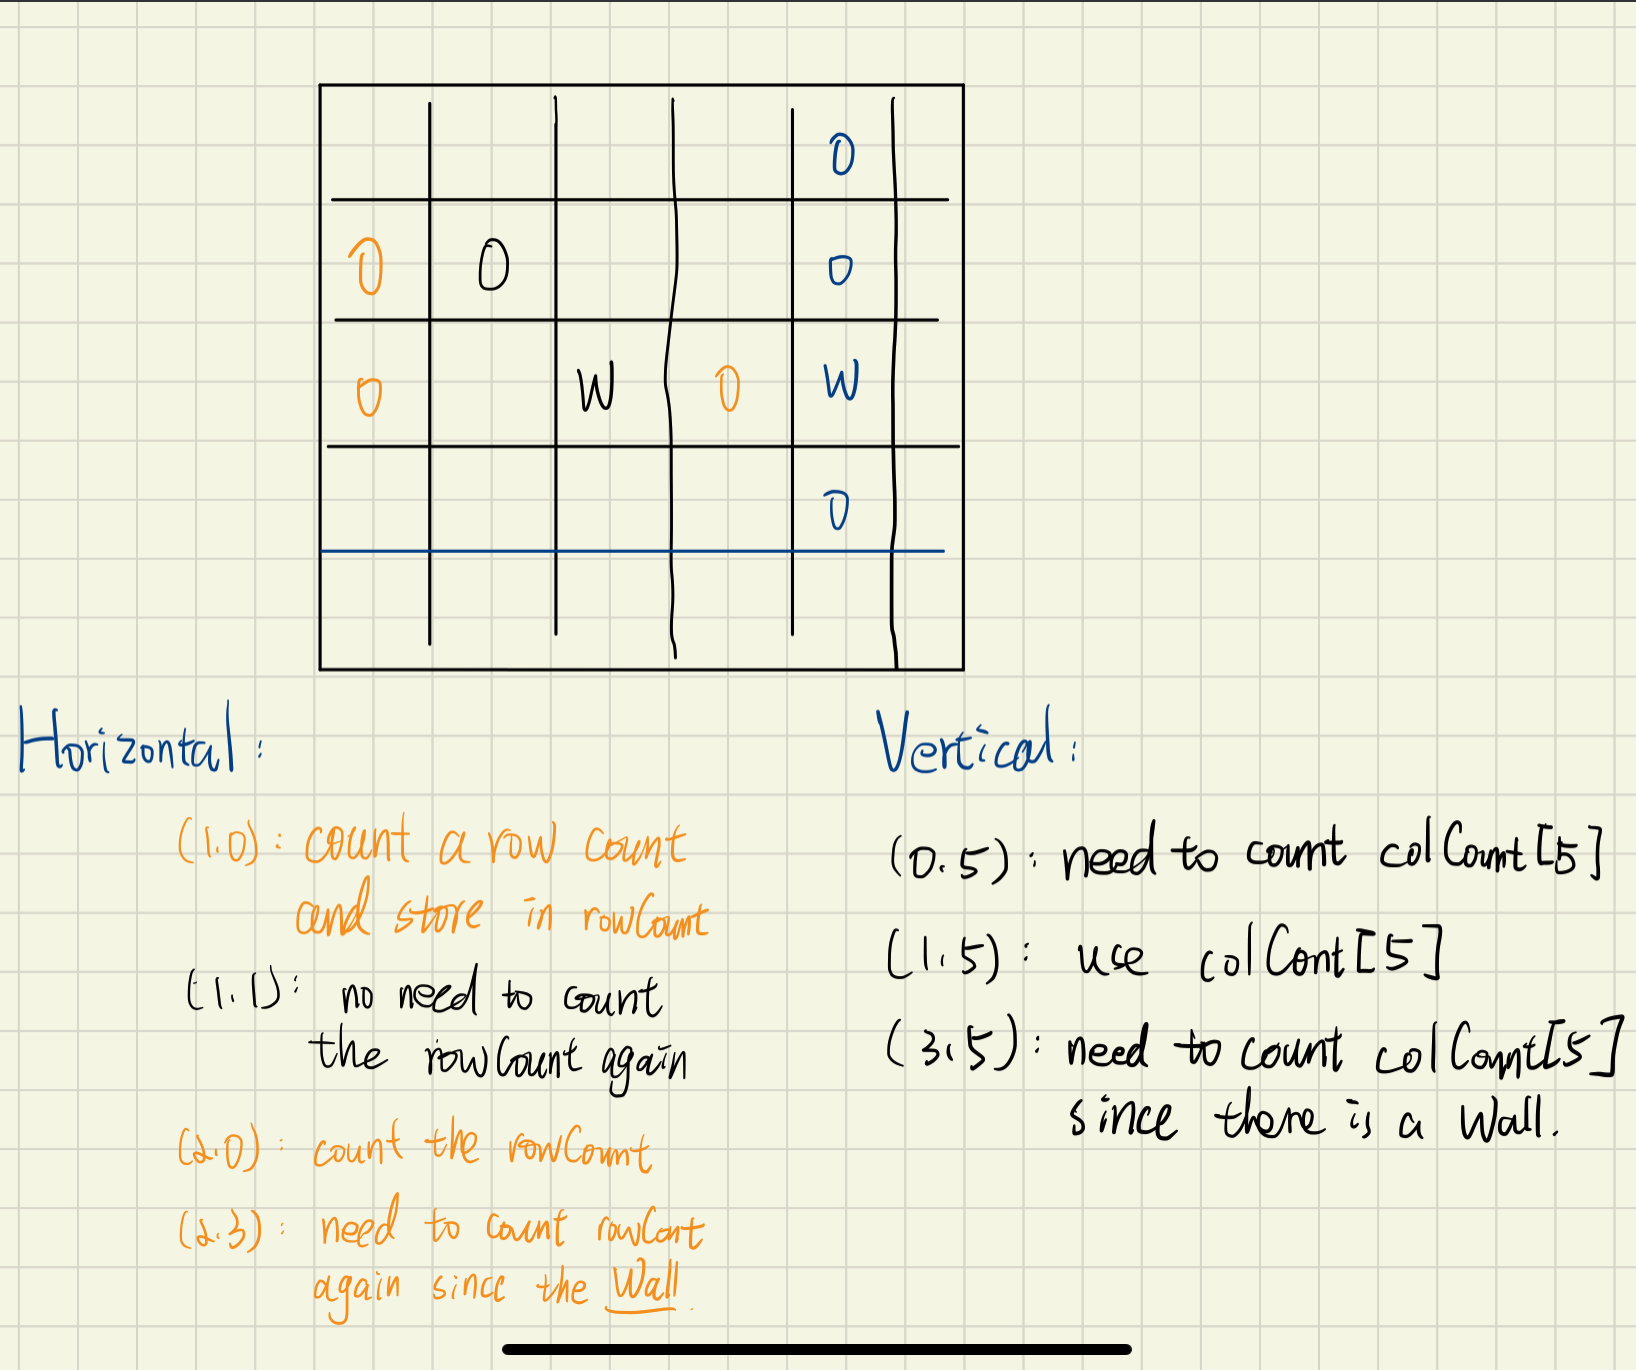 0
0 0 0
0 W 0 W
0
Horizontal:
Vertical:
(1.0): count a row count
and store in rowCount
(1.1): no need to count
the rowCount again
(2.0): count the rowCount
(2.3): need to count rowCont
again since the Wall.
(0.5): need to count colCount[5]
(1.5): use colCont[5]
(3.5): need to count colCount[5]
since there is a Wall.